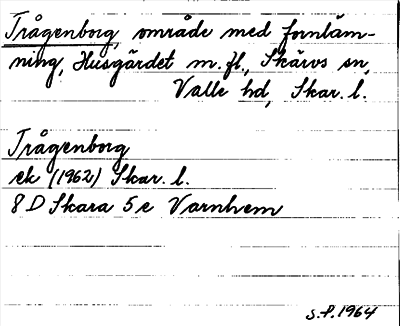 Trågenborg, område med fornläm-
ning, Husgärdet m.fl., Skärvs sn,
Valle hd, Skar. l.
Trågenborg
ek (1962) Skar. l.
8 D Skara 5 e Varnhem
S.P. 1964